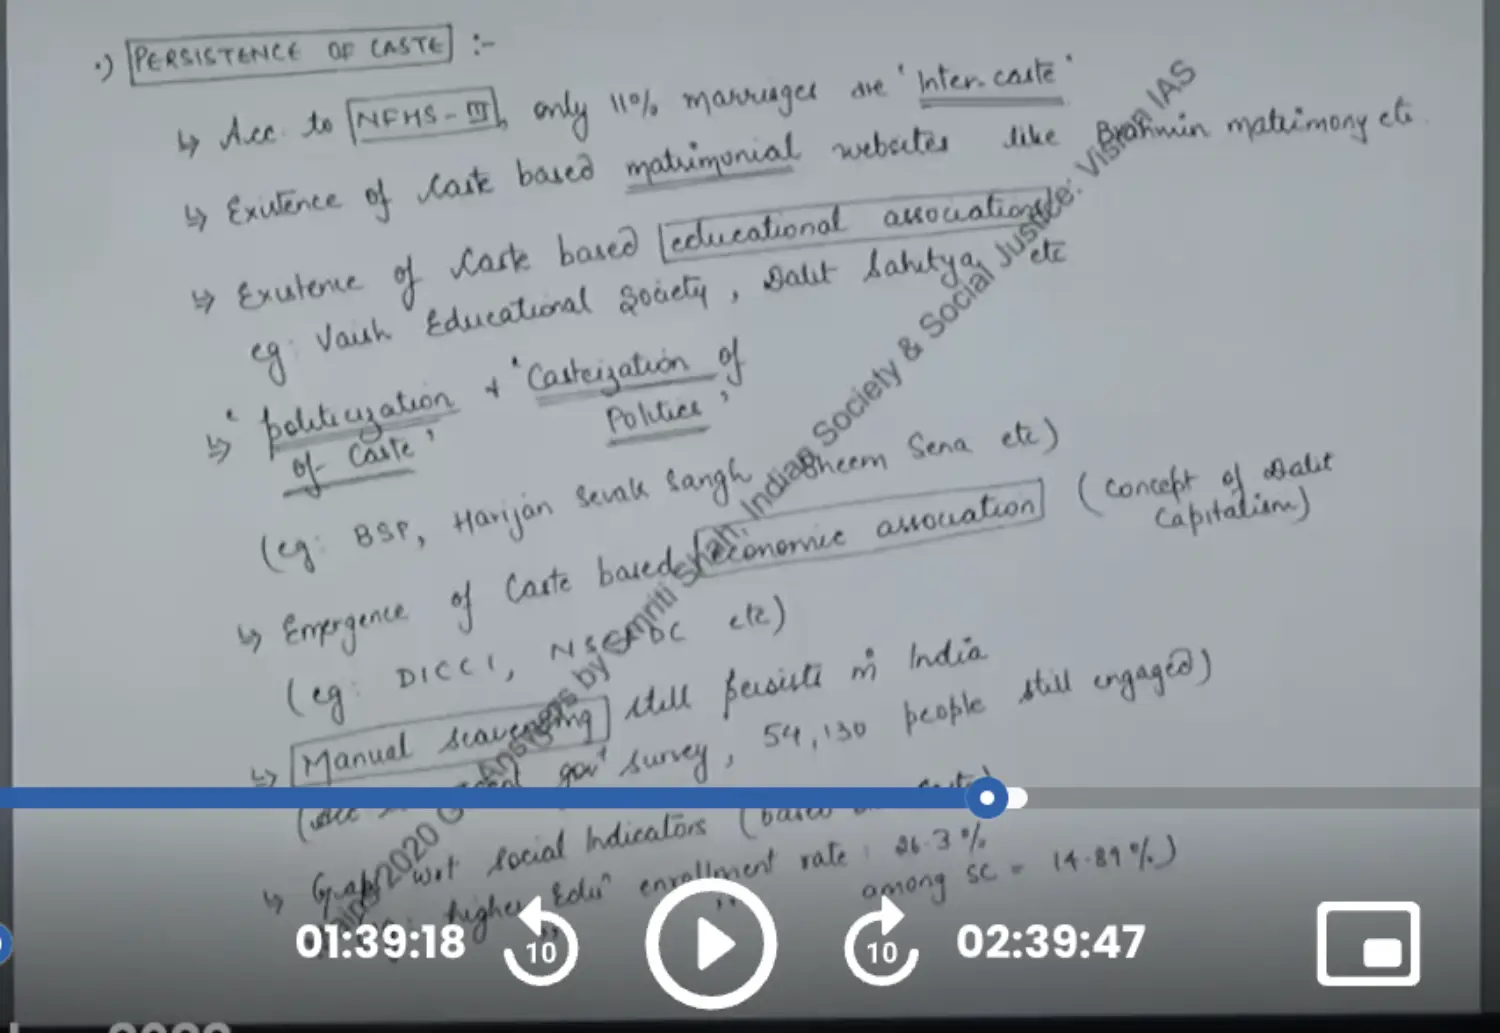 •) PERSISTENCE OF CASTE :-
↳ Acc. to NFHS-III, only 11% marriages are 'Inter caste'
↳ Existence of Caste based matrimonial websites like Brahmin matrimony etc.
↳ Existence of Caste based educational associations
eg: Vaish Educational Society, Dalit Sahitya etc
↳ 'politicization of Caste' & 'Casteization of Politics'
(eg: BSP, Harijan Sevak Sangh Bheem Sena etc)
↳ Emergence of Caste based economic association (concept of Dalit Capitalism)
(eg: DICCI, etc)
↳ Manual scavenging still persists in India
govt survey, 54,130 people still engaged)
↳ Gap wrt social Indicators (based
higher Eduⁿ enrollment rate: 26.3%
among SC = 14.89%)
2020 Answers by Smriti Shah: Indian Society & Social Justice: Vision IAS
01:39:18
10
10
02:39:47